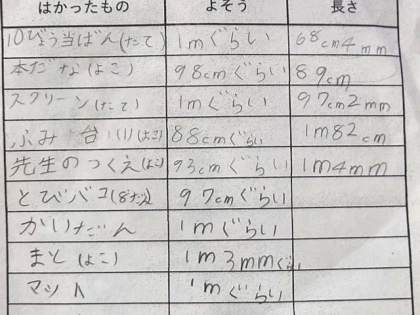 はかったもの よそう 長さ
10びょう当ばん(たて) 1mぐらい 68cm4mm
本だな(よこ) 98cmぐらい 89cm
スクリーン(たて) 1mぐらい 97cm2mm
ふみ台(1)(よこ) 88cmぐらい 1m82cm
先生のつくえ(よこ) 93cmぐらい 1m4mm
とびバコ(8だん) 97cmぐらい
かいだん 1mぐらい
まと(よこ) 1m3mmぐらい
マット 1mぐらい